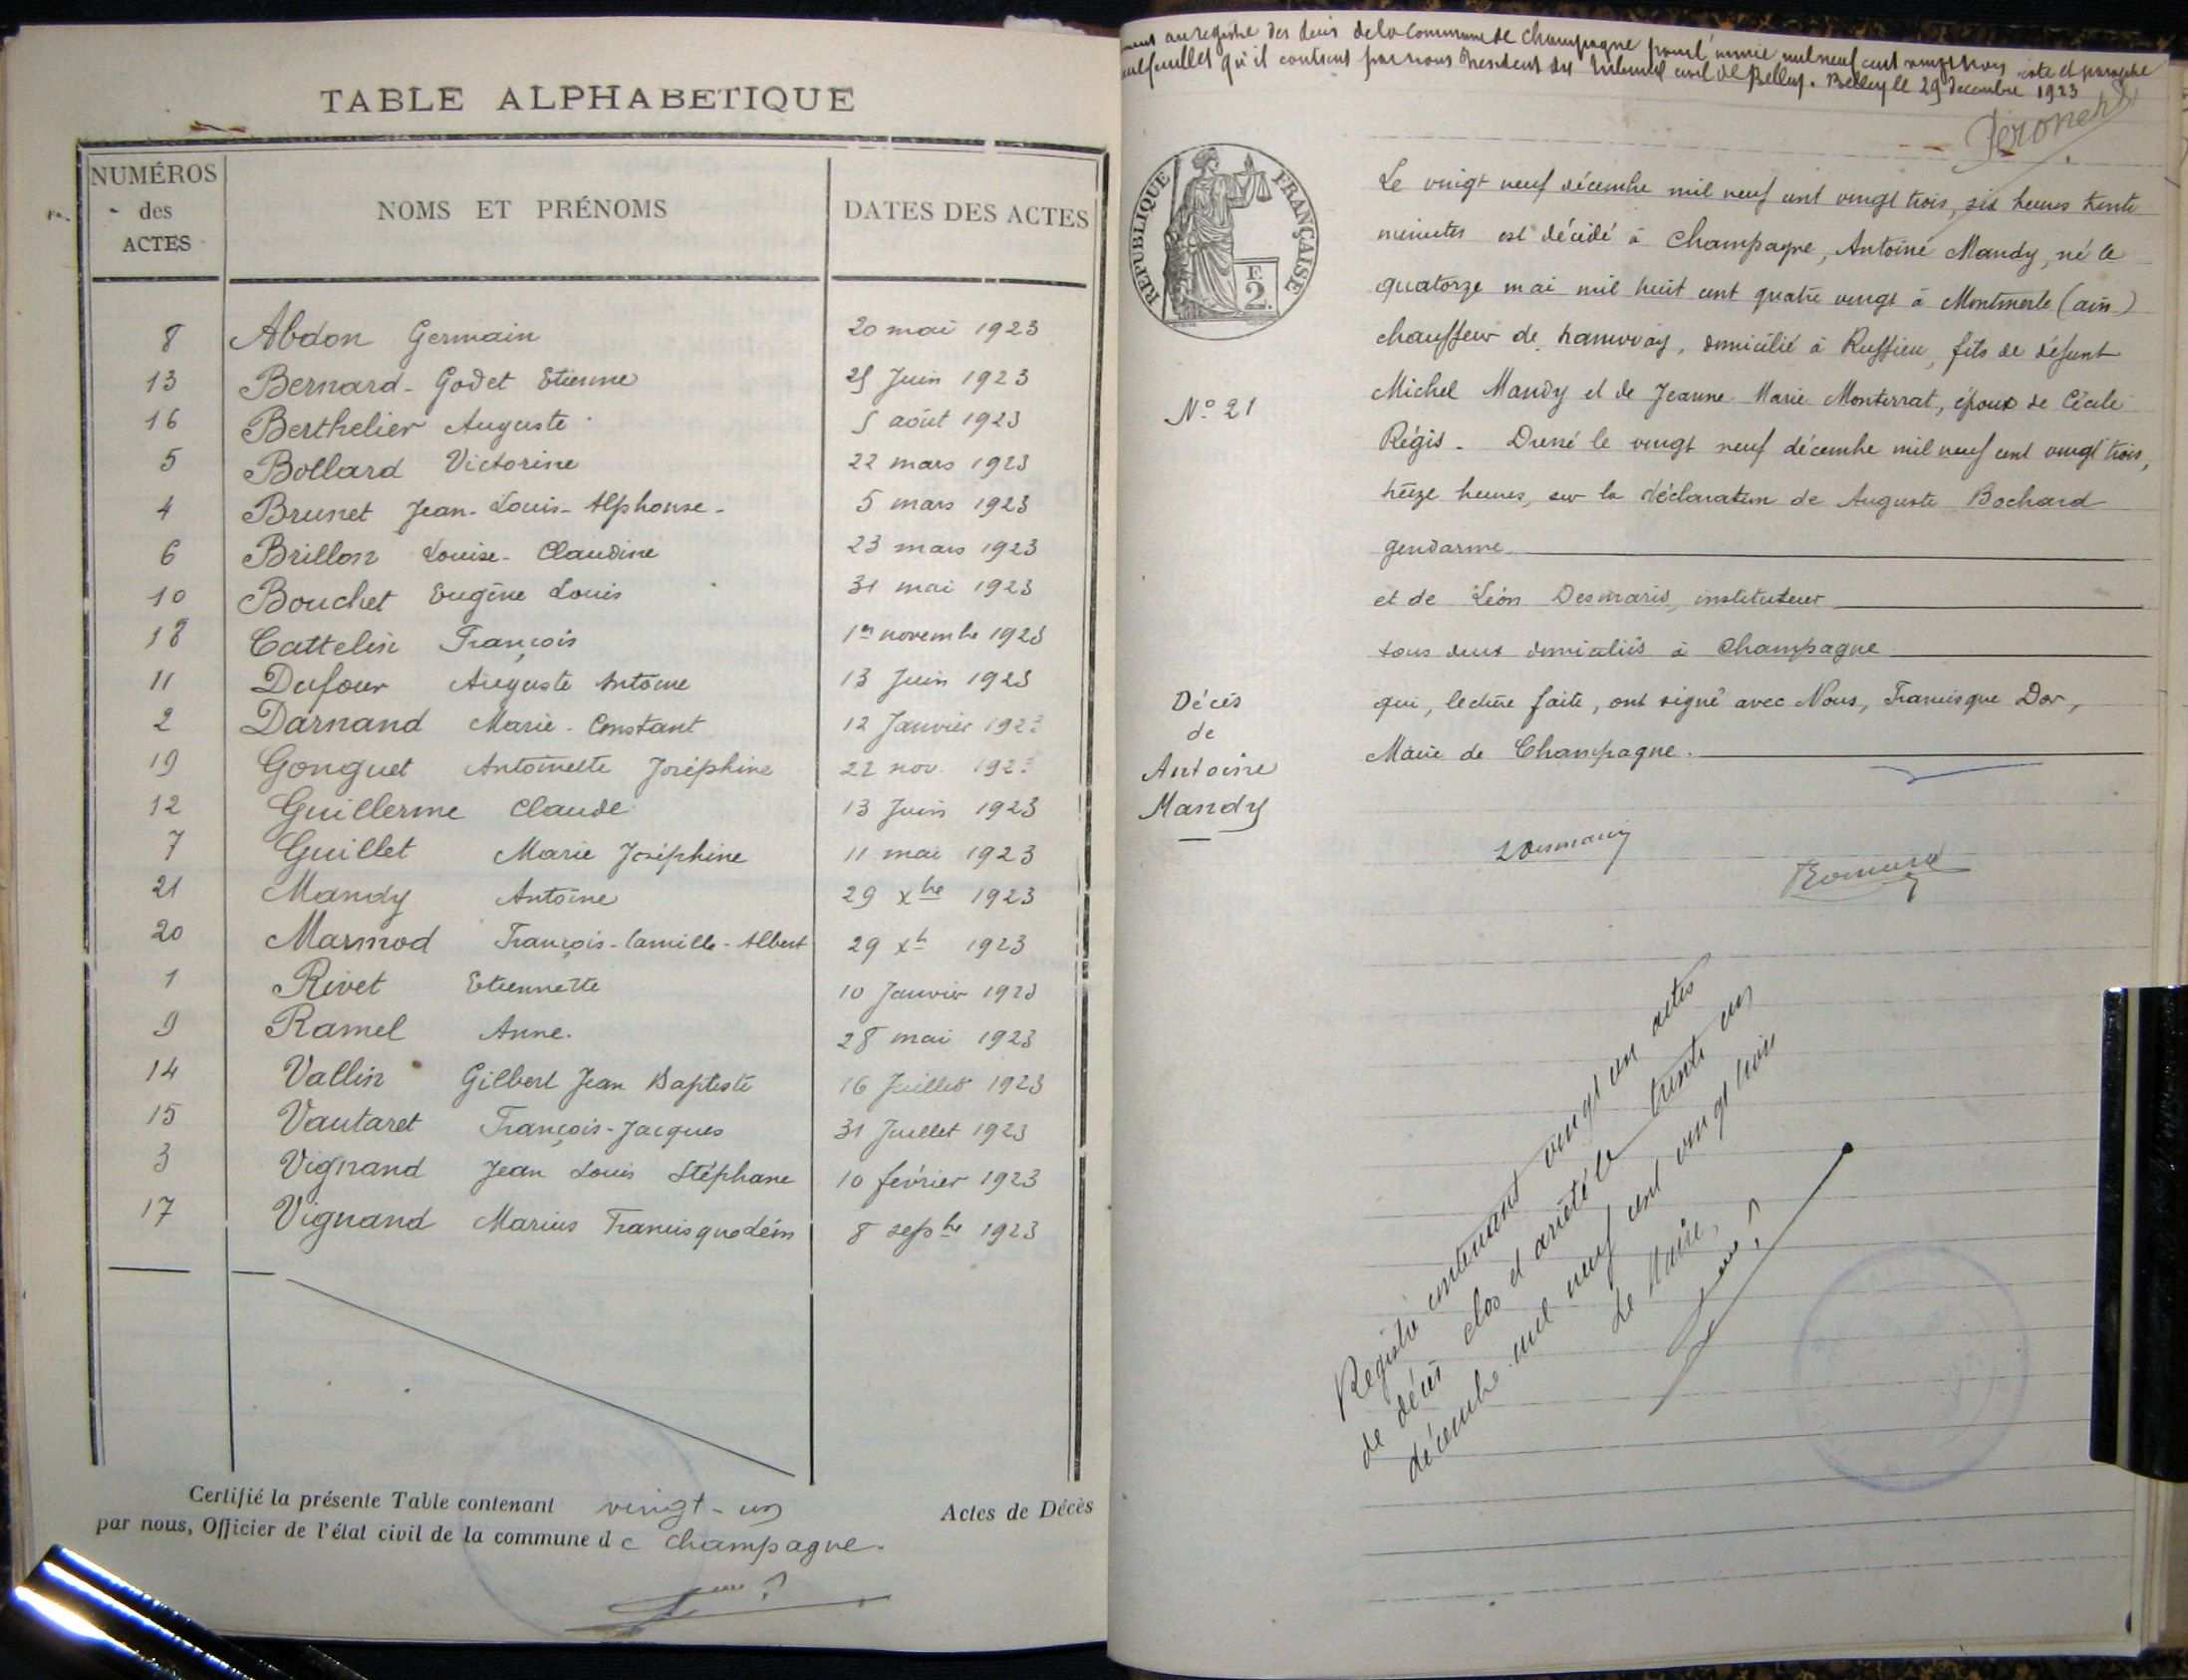 TABLE ALPHABETIQUE
NUMÉROS des ACTES NOMS ET PRÉNOMS DATES DES ACTES
8 Abdon Germain 20 mai 1923
13 Bernard-Godet Etienne 25 Juin 1923
16 Berthelier Auguste 5 août 1923
5 Bollard Victorine 22 mars 1923
4 Brunet Jean-Louis-Alphonse- 5 mars 1923
6 Brillon Louise-Claudine 23 mars 1923
10 Bouchet Eugène Louis 31 mai 1923
18 Cattelin François 1er novembre 1923
11 Dufour Auguste Antoine 13 Juin 1923
2 Darnand Marie-Constant 12 Janvier 1923
19 Gonguet Antoinette Joséphine 22 nov. 1923
12 Guillerme Claude 13 Juin 1923
7 Guillet Marie Joséphine 11 mai 1923
21 Mandy Antoine 29 xbre 1923
20 Marmod François-Camille-Albert 29 xb 1923
1 Rivet Etiennette 10 Janvier 1923
9 Ramel Anne. 28 mai 1923
14 Vallin Gilbert Jean Baptiste 16 Juillet 1923
15 Vautaret François-Jacques 31 Juillet 1923
3 Vignand Jean Louis Stéphane 10 février 1923
17 Vignand Marius 8 sepbre 1923
Certifié la présente Table contenant vingt-un Actes de Décès
par nous, Officier de l'état civil de la commune de Champagne.
au registre des décès de la Commune de Champagne pour l'année mil neuf cent vingt trois cote et paraphé
feuillets qu'il contient par nous Président du Tribunal civil de Belley. Belley le 29 décembre 1923
REPUBLIQUE FRANÇAISE
F.
2.
Le vingt neuf décembre mil neuf cent vingt trois, six heures trente
minutes est décédé à Champagne, Antoine Mandy, né le
quatorze mai mil huit cent quatre vingt à Montmerle (ain)
chauffeur de tramway, domicilié à Ruffieu, fils de défunt
No 21
Michel Mandy et de Jeanne Marie Monterrat, époux de Cécile
Régis. Dressé le vingt neuf décembre mil neuf cent vingt trois,
treize heures, sur la déclaration de Auguste Bochard
gendarme
et de Léon Desmaris, instituteur
tous deux domiciliés à Champagne
Décès
de
Antoine
Mandy
qui, lecture faite, ont signé avec Nous, Francisque Dor,
Maire de Champagne.
LDesmaris
Registre contenant vingt un actes
de décès clos et arrêté le trente un
décembre mil neuf cent vingt trois
Le Maire,